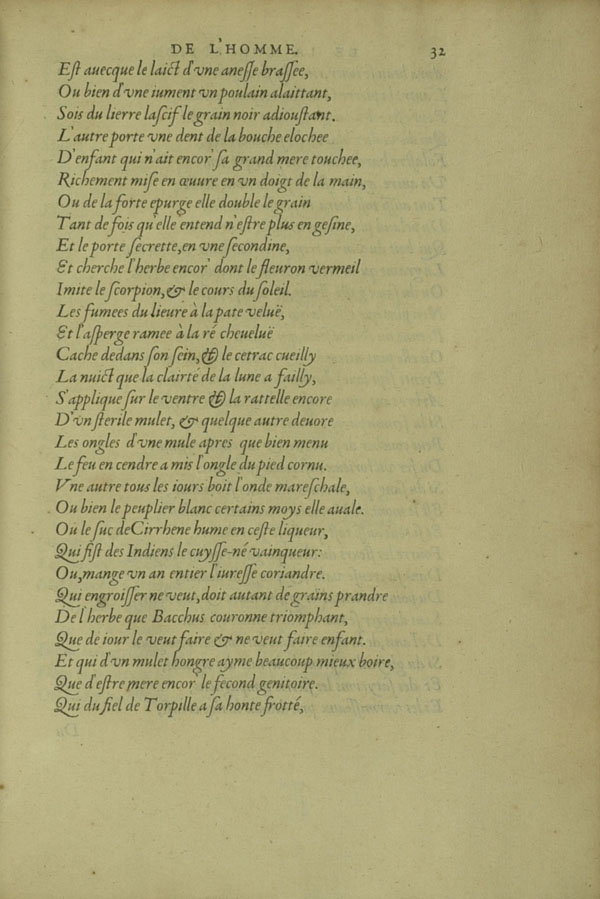 DE L'HOMME. 32
Eſt auecque le laict d'vne aneſſe braſſee,
Ou bien d'vne iument vn poulain alaittant,
Sois du lierre laſcif le grain noir adiouſtant.
L'autre porte vne dent de la bouche elochee
D'enfant qui n'ait encor' ſa grand mere touchee,
Richement miſe en œuure en vn doigt de la main,
Ou de la ſorte epurge elle double le grain
Tant de fois qu'elle entend n'eſtre plus en geſine,
Et le porte ſecrette, en vne ſecondine,
Et cherche l'herbe encor' dont le fleuron vermeil
Imite le ſcorpion, & le cours du ſoleil.
Les fumees du lieure à la pate veluë,
Et l'aſperge ramee à la ré cheueluë
Cache dedans ſon ſein, & le cetrac cueilly
La nuict que la clairté de la lune a failly,
S'applique ſur le ventre & la rattelle encore
D'vn ſterile mulet, & quelque autre deuore
Les ongles d'vne mule apres que bien menu
Le feu en cendre a mis l'ongle du pied cornu.
Vne autre tous les iours boit l'onde mareſchale,
Ou bien le peuplier blanc certains moys elle auale.
Ou le ſuc de Cirrhene hume en ceſte liqueur,
Qui fiſt des Indiens le cuyſſe-né vainqueur:
Ou, mange vn an entier l'iureſſe coriandre.
Qui engroiſſer ne veut, doit autant de grains prandre
De l'herbe que Bacchus couronne triomphant,
Que de iour le veut faire & ne veut faire enfant.
Et qui d'vn mulet hongre ayme beaucoup mieux boire,
Que d'eſtre mere encor' le fecond genitoire.
Qui du fiel de Torpille a ſa honte frotté,